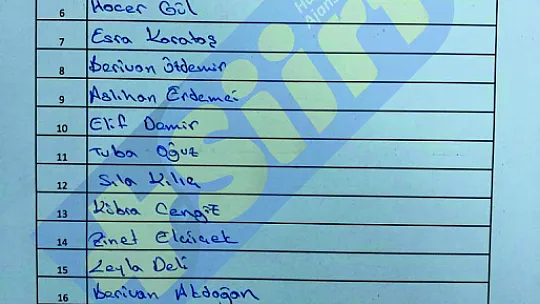 6 Hacer Gül
7 Esra Karataş
8 Berivan Özdemir
9 Aslıhan Erdemci
10 Elif Demir
11 Tuba Oğuz
12 Sıla Kılıç
13 Kübra Cengiz
14 Zinet Elçiçek
15 Leyla Deli
16 Berivan Akdoğan
Siirt